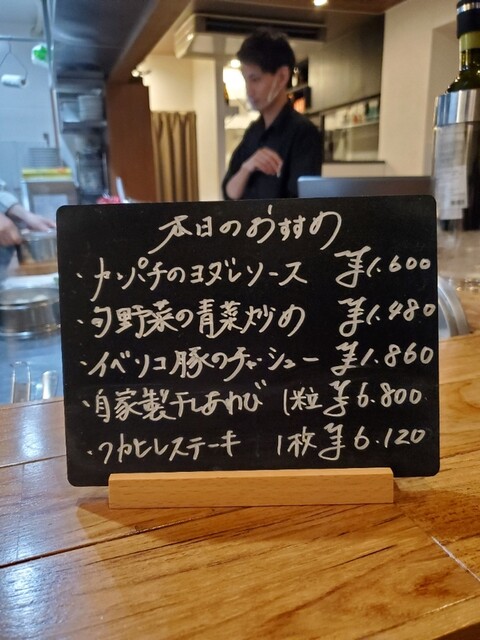 本日のおすすめ
・カンパチのヨダレソース ¥1.600
・旬野菜の青菜炒め ¥1.480
・イベリコ豚のチャーシュー ¥1.860
・自家製干しあわび 1粒 ¥6.800
・フカヒレステーキ 1枚 ¥6.120